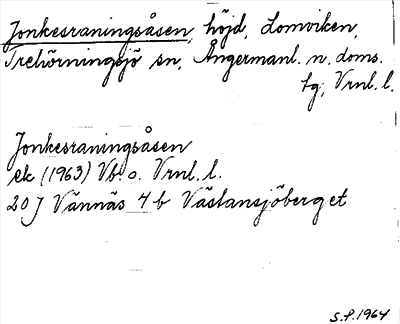 Jonkesraningsåsen, höjd, Lomviken,
Trehörningsjö sn, Ångermanl. n. doms.
tg, Vrnl. l.
Jonkesraningsåsen
ek (1963) Vb o. Vrnl. l.
20 J Vännäs 4 b Västansjöberget
S.P. 1964